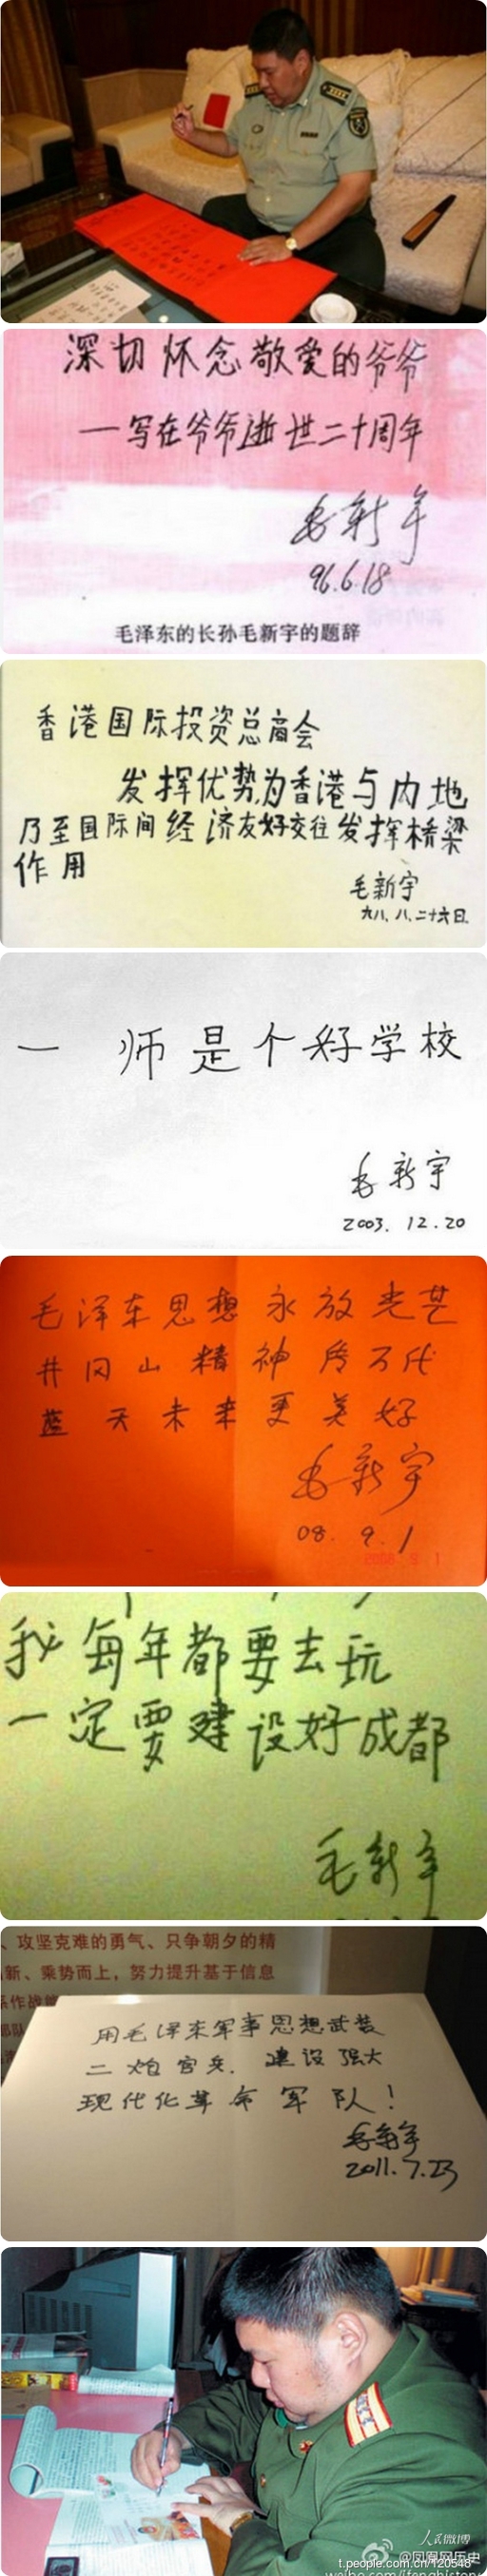 深切怀念敬爱的爷爷
—写在爷爷逝世二十周年
毛新宇
96.6.18
毛泽东的长孙毛新宇的题辞
香港国际投资总商会
发挥优势为香港与内地
乃至国际间经济友好交往发挥桥梁
作用
毛新宇
九八.八.二十六日.
一师是个好学校
毛新宇
2003.12.20
毛泽东思想永放光芒
井冈山精神传万代
蓝天未来更美好
毛新宇
08.9.1
2008 9 1
我每年都要去玩
一定要建设好成都
毛新宇
、攻坚克难的勇气、只争朝夕的精
新、乘势而上，努力提升基于信息
系作战能
部队
用毛泽东军事思想武装
二炮官兵.建设强大
现代化革命军队!
毛新宇
2011.7.23
人民微博
@凤凰网历史
t.people.com.cn/120548